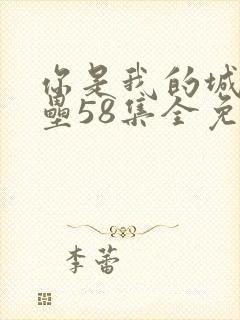 你是我的城
壘58集全免
李蕾